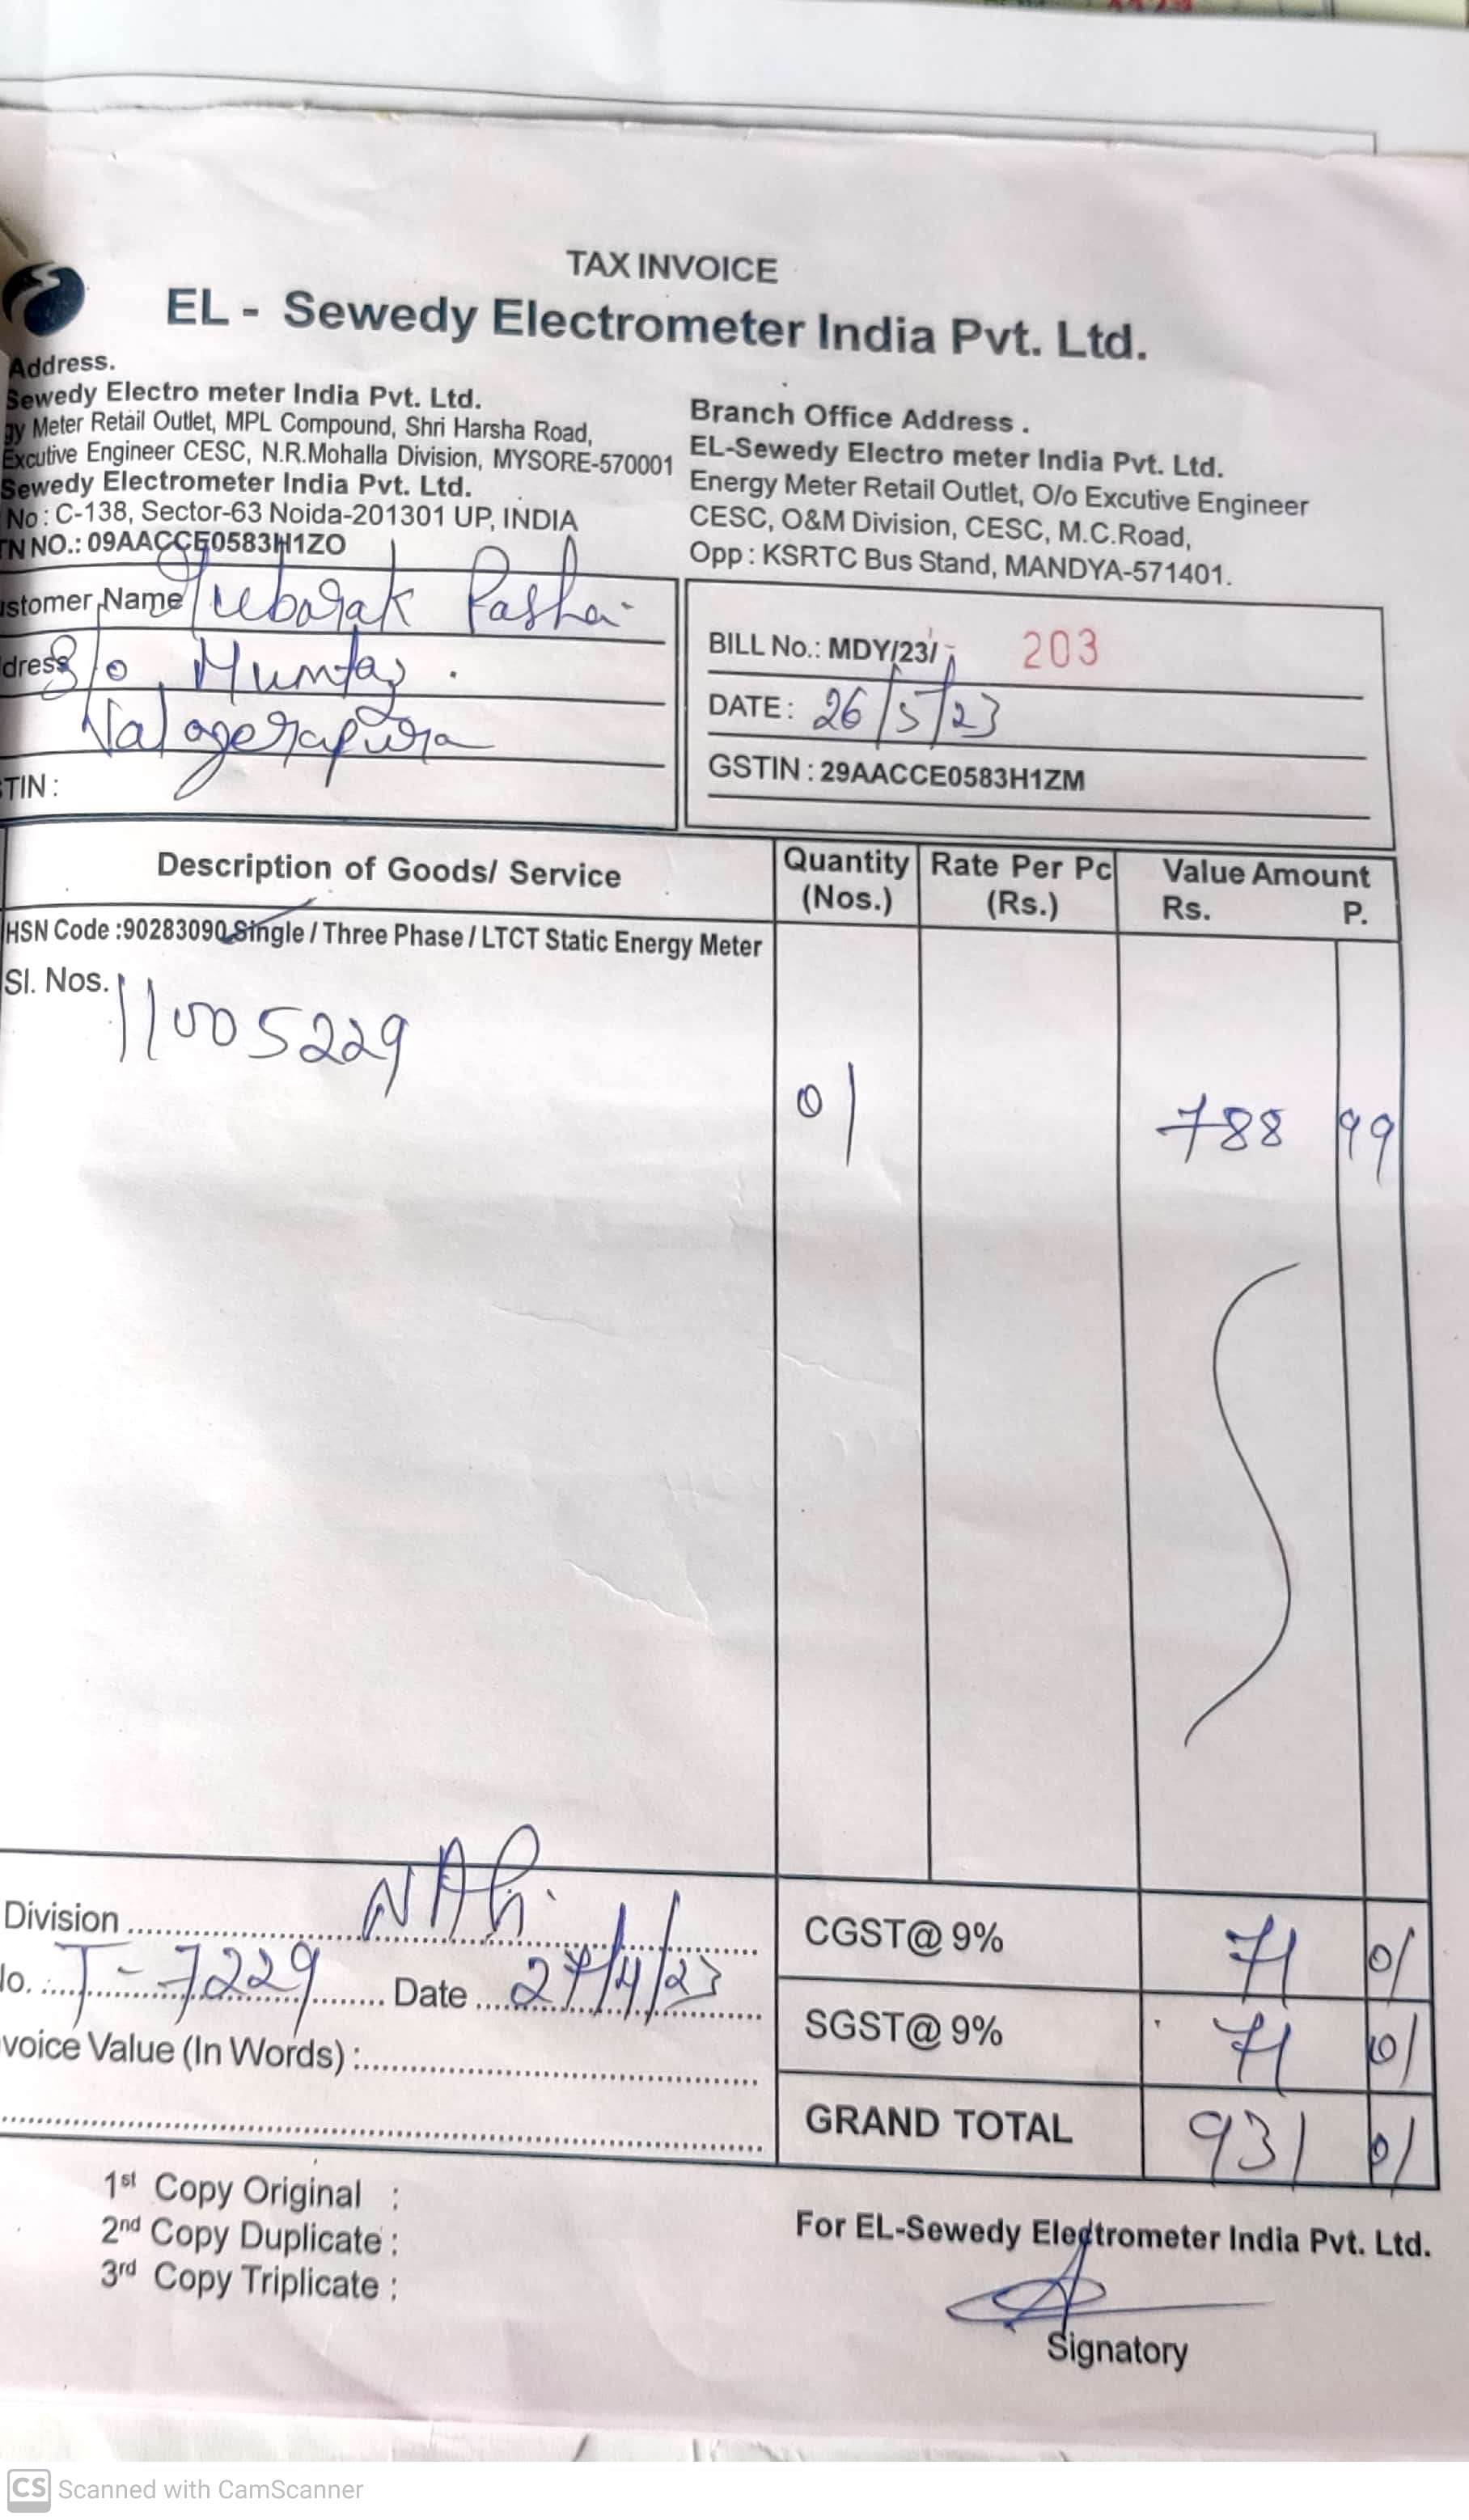 TAX INVOICE
EL - Sewedy Electrometer India Pvt. Ltd.
Address.
Sewedy Electro meter India Pvt. Ltd.
gy Meter Retail Outlet, MPL Compound, Shri Harsha Road,
Excutive Engineer CESC, N.R.Mohalla Division, MYSORE-570001
Sewedy Electrometer India Pvt. Ltd.
No : C-138, Sector-63 Noida-201301 UP, INDIA
TN NO.: 09AACCE0583H1ZO
Branch Office Address .
EL-Sewedy Electro meter India Pvt. Ltd.
Energy Meter Retail Outlet, O/o Excutive Engineer
CESC, O&M Division, CESC, M.C.Road,
Opp : KSRTC Bus Stand, MANDYA-571401.
ustomer Name Mubarak Pasha
dress S/o Mumtaz
Nalagerapura
TIN :
BILL No.: MDY/23/ 203
DATE : 26/5/23
GSTIN : 29AACCE0583H1ZM
Description of Goods/ Service Quantity (Nos.) Rate Per Pc (Rs.) Value Amount Rs. P.
HSN Code :90283090 Single / Three Phase / LTCT Static Energy Meter
Sl. Nos. 11005229
01 788 99
Division
No. : T-7229 Date 27/4/23
voice Value (In Words) :
CGST@ 9% 71 01
SGST@ 9% 71 01
GRAND TOTAL 931 01
1st Copy Original :
2nd Copy Duplicate :
3rd Copy Triplicate :
For EL-Sewedy Electrometer India Pvt. Ltd.
Signatory
CS Scanned with CamScanner